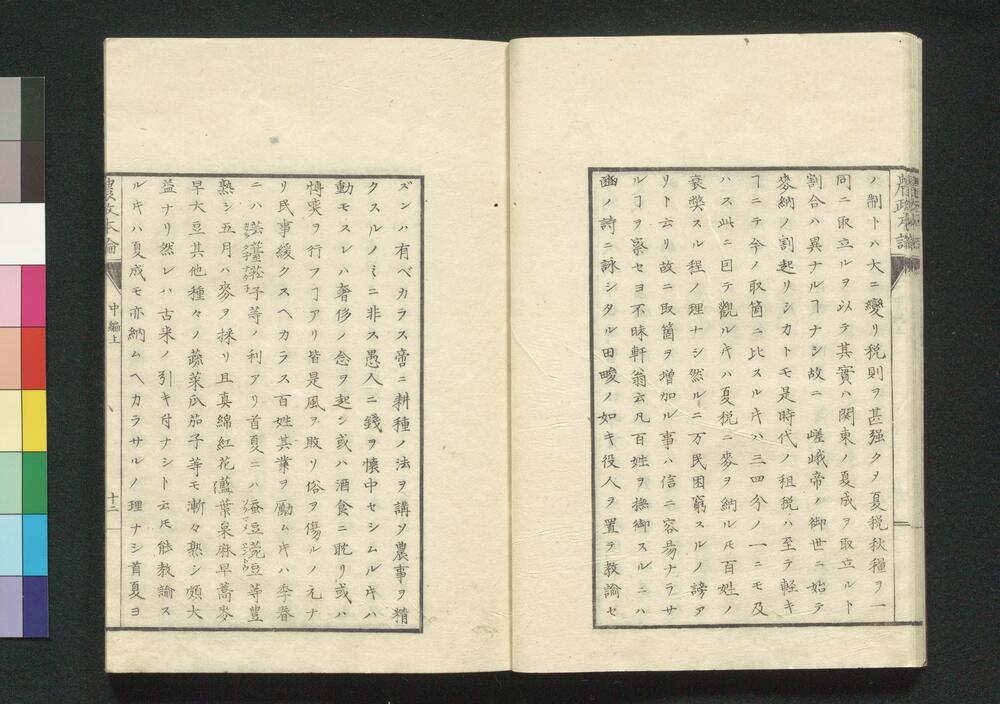 ノ制トハ大ニ變リ税則ヲ甚强クメ夏税秋糧ヲ一
同ニ取立ルヲ以テ其實ハ関東ノ夏成ヲ取立ルト
割合ハ異ナルヿナシ故ニ 嵯峨帝ノ御世ニ始テ
麥納ノ割起リシカトモ是時代ノ租税ハ至テ軽キ
ヿニテ今ノ取箇ニ比スルキハ三四分ノ一ニモ及
ハス此ニ因テ觀ルキハ夏税ニ麥ヲ納ルモ百姓ノ
衰弊スル程ノ理ナシ然ルニ万民困窮スルノ謗ア
リト云リ故ニ取箇ヲ増加ル事ハ信ニ容昜ナラサ
ルヿヲ察セヨ不昧軒翁云凡百姓ヲ撫御スルニハ
豳ノ詩ニ詠シタル田畯ノ如キ役人ヲ置テ教諭セ
ズンハ有ベカラス啻ニ耕種ノ法ヲ講ソ農事ヲ精
クスルノミニ非ス愚人ニ錢ヲ懐中セシムルキハ
動モスレハ奢侈ノ念ヲ起シ或ハ酒食ニ耽リ或ハ
博奕ヲ行フヿアリ皆是風ヲ敗リ俗ヲ傷ルノ元ナ
リ民事緩クスヘカラス百姓其業ヲ勵ムキハ季春
ニハ芸薹菘子等ノ利アリ首夏ニハ蚕豆豌豆等豊
熟シ五月ハ麥ヲ採リ且真綿紅花藍葉枲麻早蕎麥
早大豆其他種々ノ蔬菜瓜茄子等モ漸々熟シ頗大
益ナリ然レハ古来ノ引キ付ナシト云モ能教諭ス
ルキハ夏成モ亦納ムヘカラサルノ理ナシ首夏ヨ
農政本論
中編上
十二